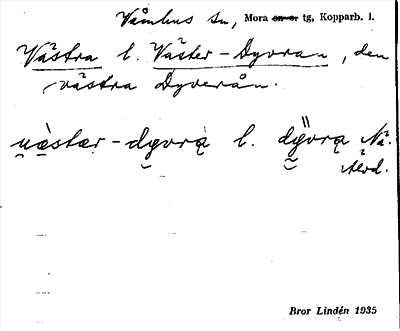 Våmhus sn, Mora sn o. tg, Kopparb. l.
Västra l. Väster-Dyvran, den
västra Dyverån.
u̯æstær-dyvrą l. dÿvrą Nä.
Ålvd.
Bror Lindén 1935